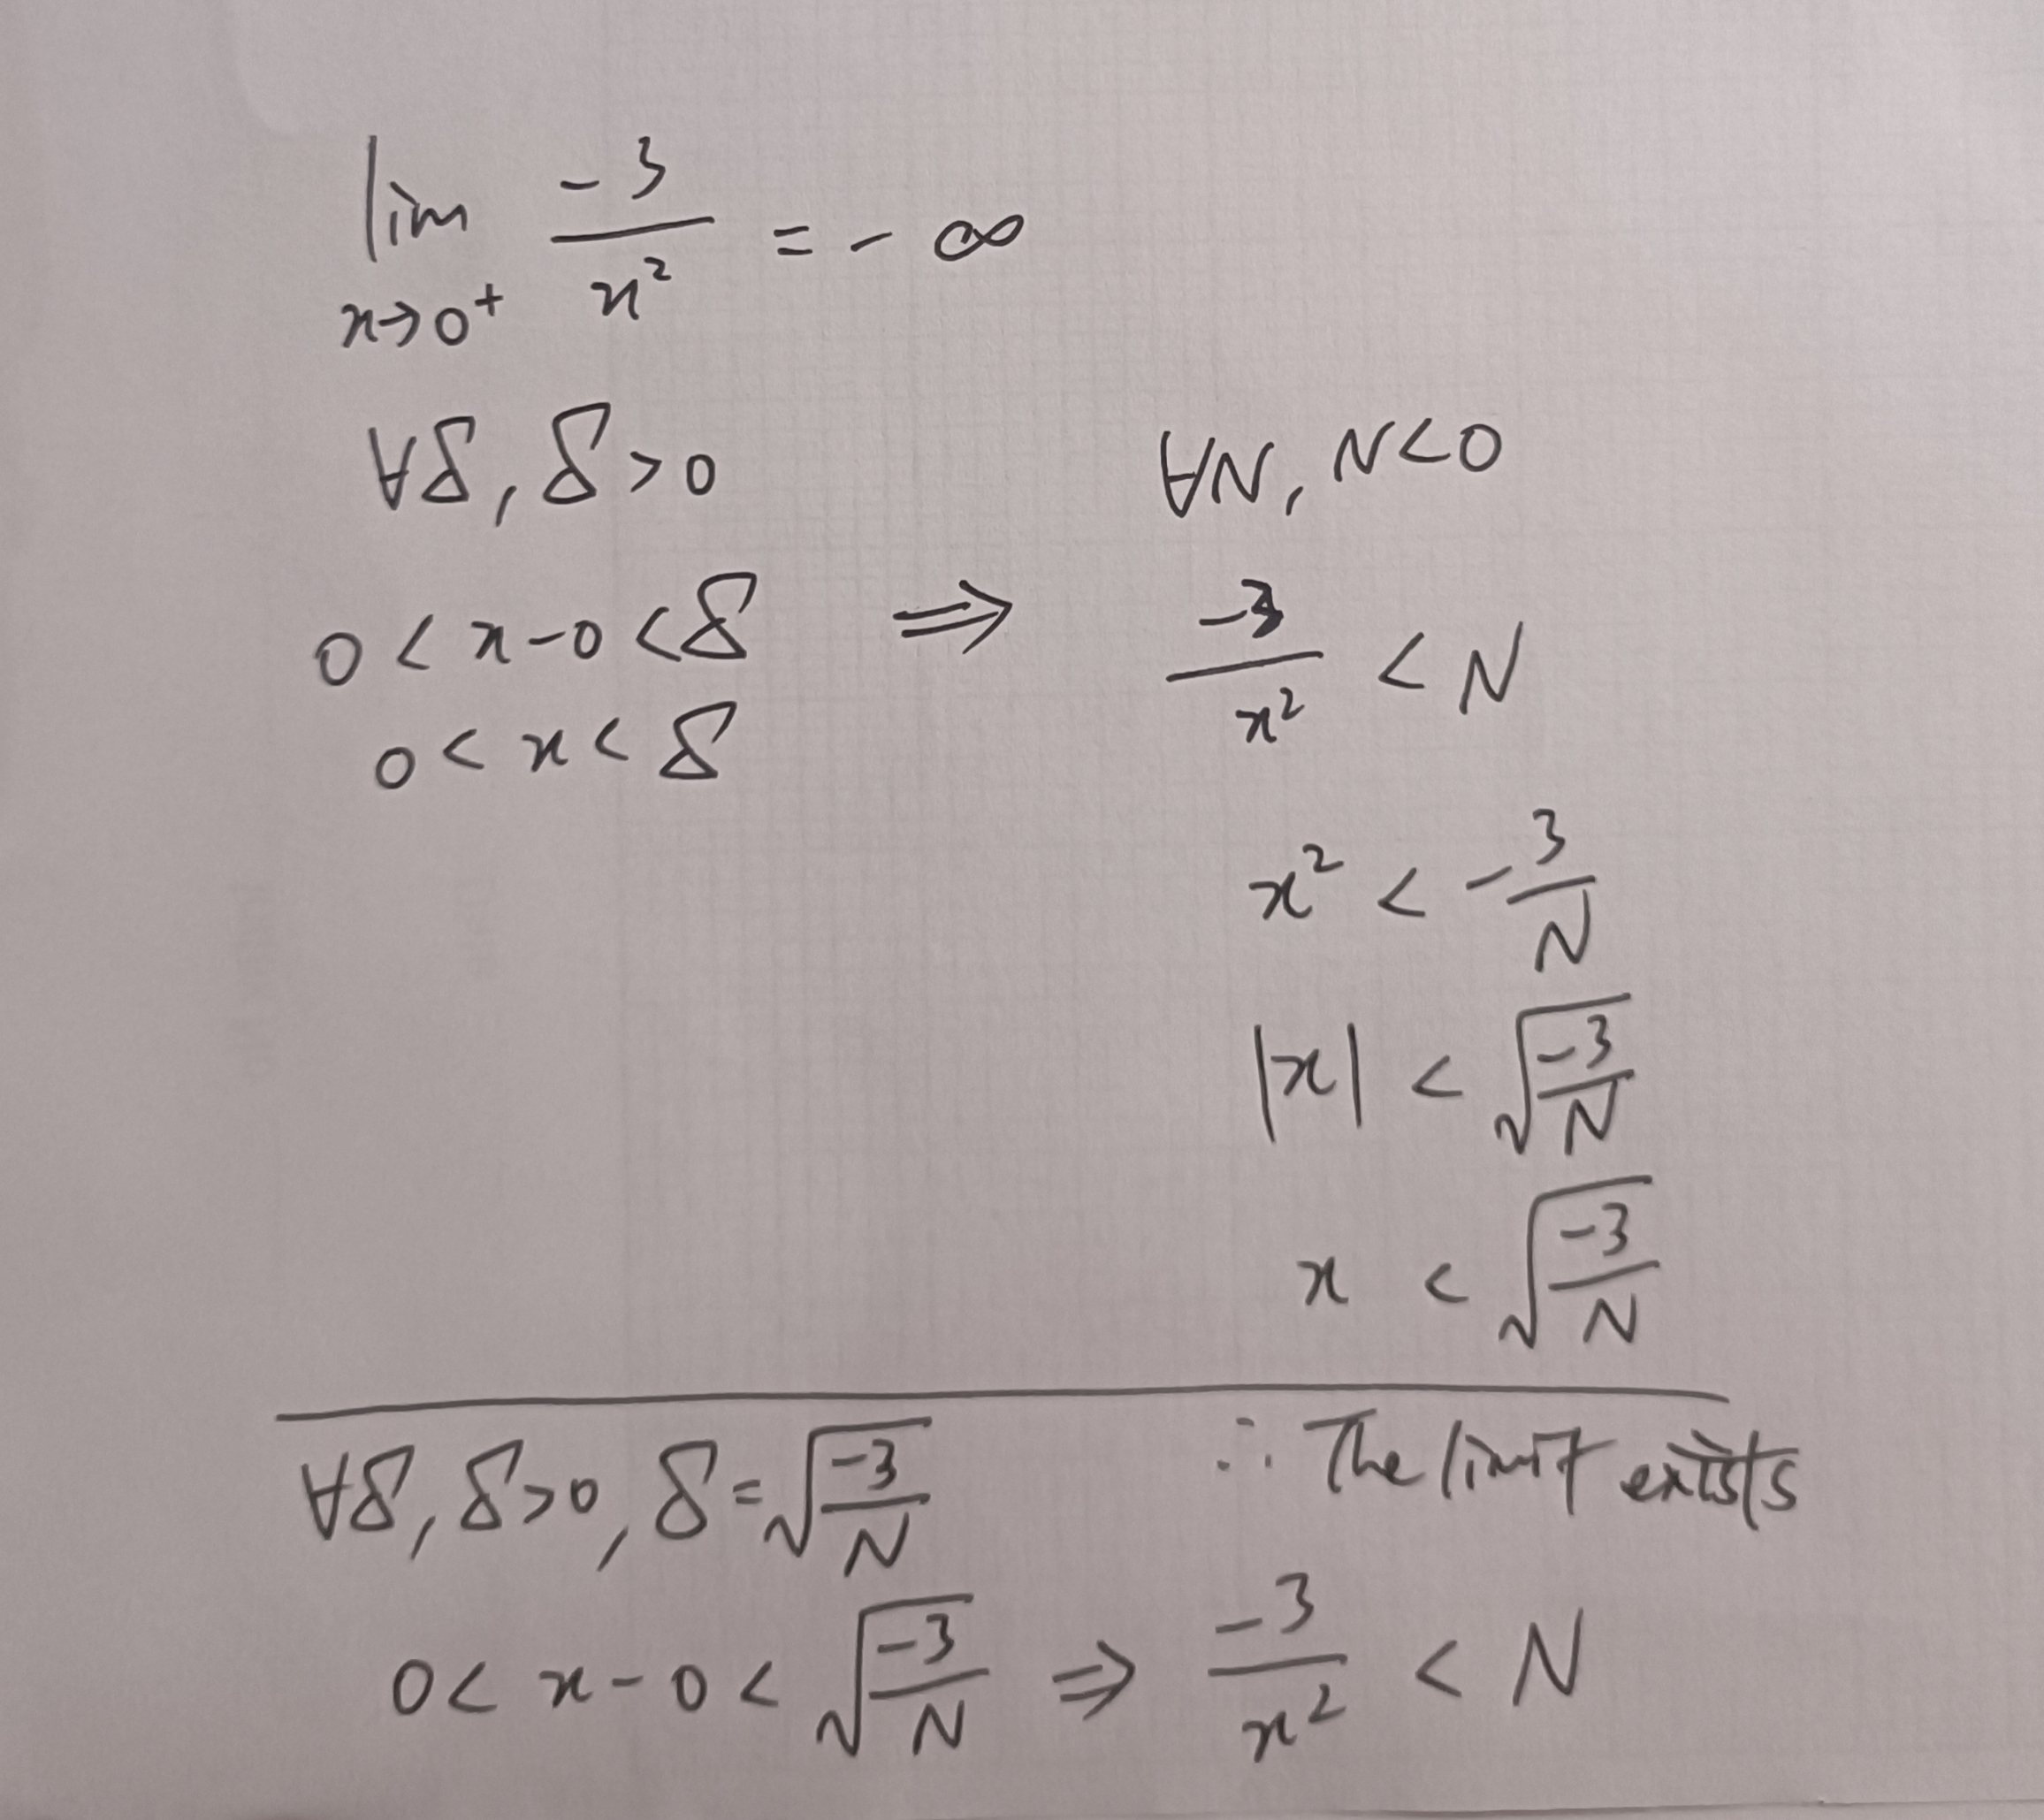 lim x→0⁺ -3/x² = -∞
∀δ, δ>0    ∀N, N<0
0 < x-0 < δ ⇒ -3/x² < N
0 < x < δ
x² < -3/N
|x| < √(-3/N)
x < √(-3/N)
∀δ, δ>0, δ = √(-3/N)    ∴ The limit exists
0 < x-0 < √(-3/N) ⇒ -3/x² < N